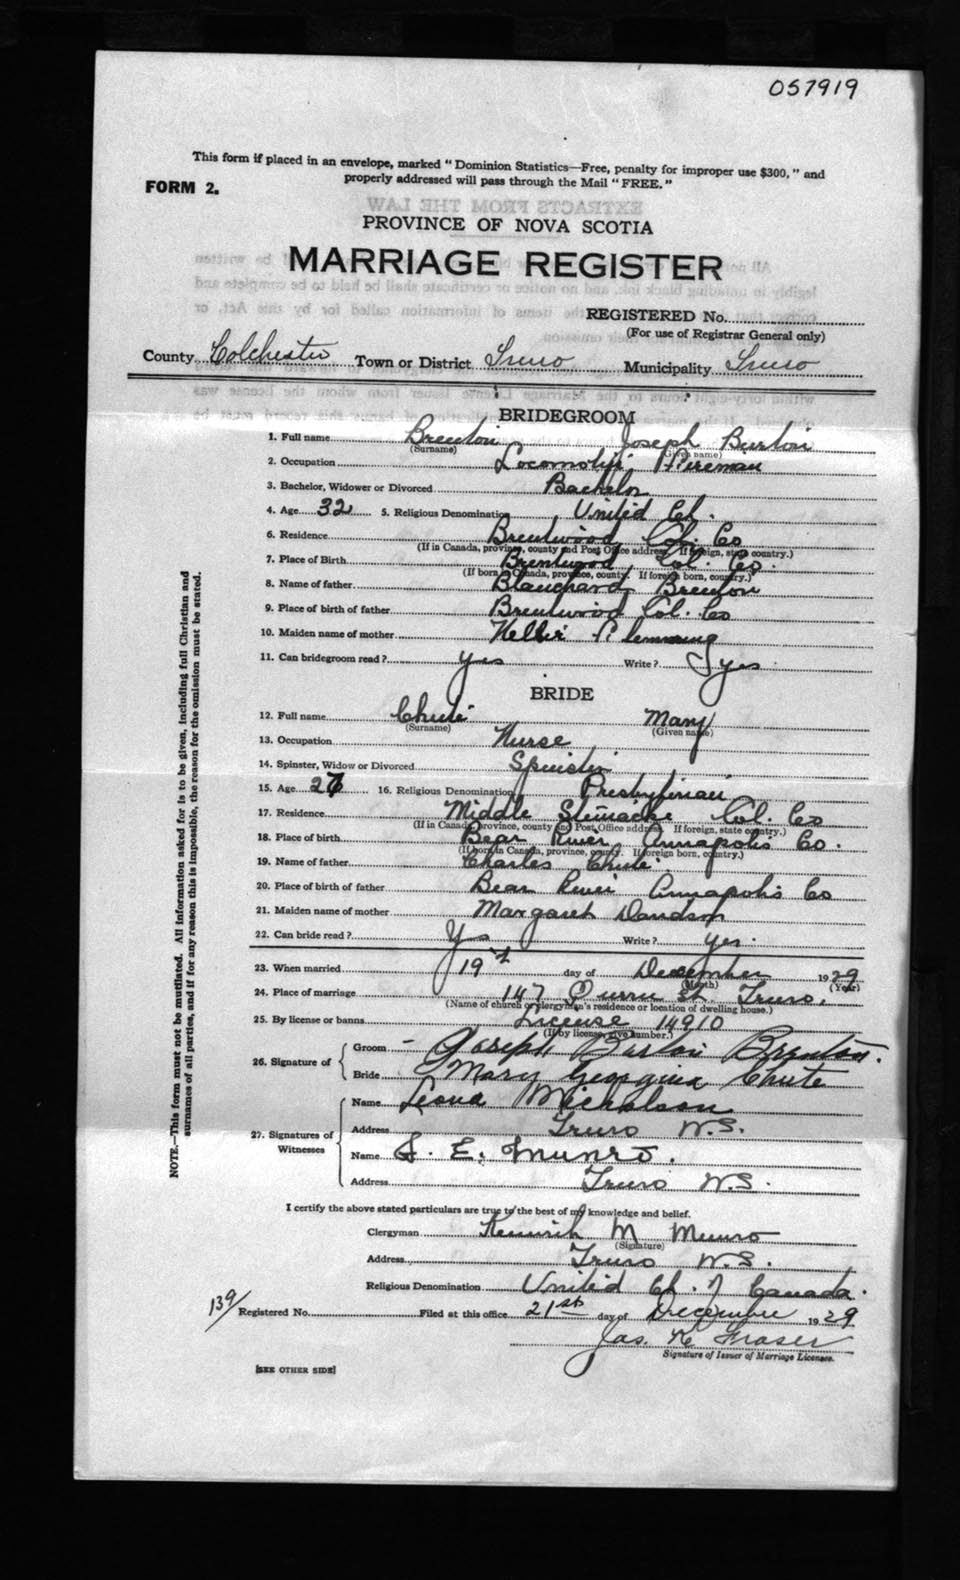 057919
This form if placed in an envelope, marked "Dominion Statistics—Free, penalty for improper use $300," and
properly addressed will pass through the Mail "FREE."
FORM 2.
EXTRACTS FROM THE LAW
PROVINCE OF NOVA SCOTIA
MARRIAGE REGISTER
REGISTERED No.
(For use of Registrar General only)
County Colchester Town or District Truro Municipality Truro
BRIDEGROOM
1. Full name Brenton Joseph Burton
(Surname) (Given name)
2. Occupation Locomotive Fireman
3. Bachelor, Widower or Divorced Bachelor
4. Age 32 5. Religious Denomination United Ch.
6. Residence Brentwood Col. Co
(If in Canada, province, county and Post Office address. If foreign, state country.)
7. Place of Birth Brentwood Col. Co.
(If born in Canada, province, county. If foreign born, country.)
8. Name of father Blanchard Brenton
9. Place of birth of father Brentwood Col. Co
10. Maiden name of mother Nellie Flemming
11. Can bridegroom read? yes Write? yes
BRIDE
12. Full name Chute Mary
(Surname) (Given name)
13. Occupation Nurse
14. Spinster, Widow or Divorced Spinster
15. Age 27 16. Religious Denomination Presbyterian
17. Residence Middle Stewiacke Col. Co
(If in Canada, province, county and Post Office address. If foreign, state country.)
18. Place of birth Bear River Annapolis Co.
(If born in Canada, province, county. If foreign born, country.)
19. Name of father Charles Chute
20. Place of birth of father Bear River Annapolis Co
21. Maiden name of mother Margaret
22. Can bride read? Yes Write? yes.
23. When married 19th day of December 1929
(Month) (Year)
24. Place of marriage 147 St. Truro.
(Name of church or clergyman's residence or location of dwelling house.)
25. By license or banns License 14910
(If by license, give number.)
26. Signature of Groom Joseph Burton Brenton.
Bride Mary Georgina Chute
27. Signatures of Witnesses
Name Leona Nicholson
Address Truro N.S.
Name S. E. Munro.
Address Truro N.S.
I certify the above stated particulars are true to the best of my knowledge and belief.
Clergyman M Munro
(Signature)
Address Truro N.S.
Religious Denomination United Ch. of Canada.
139 Registered No. Filed at this office 21st day of December 1929
Jas. K Fraser
Signature of Issuer of Marriage Licenses.
[SEE OTHER SIDE]
NOTE.—This form must not be mutilated. All information asked for is to be given, including full Christian and
surnames of all parties, and if for any reason this is impossible, the reason for the omission must be stated.